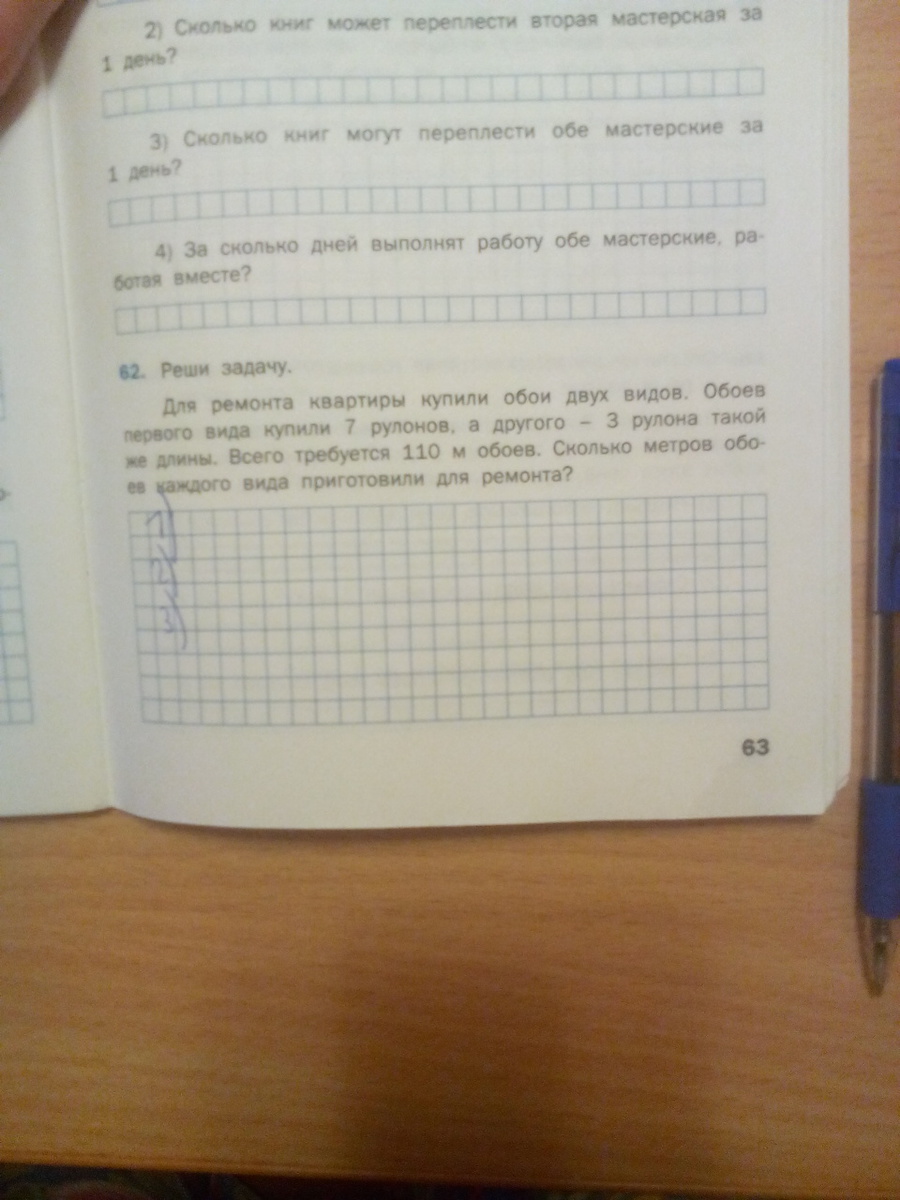 2) Сколько книг может переплести вторая мастерская за
1 день?
3) Сколько книг могут переплести обе мастерские за
1 день?
4) За сколько дней выполнят работу обе мастерские, ра-
ботая вместе?
62. Реши задачу.
Для ремонта квартиры купили обои двух видов. Обоев
первого вида купили 7 рулонов, а другого – 3 рулона такой
же длины. Всего требуется 110 м обоев. Сколько метров обо-
ев каждого вида приготовили для ремонта?
1)
2)
3)
63